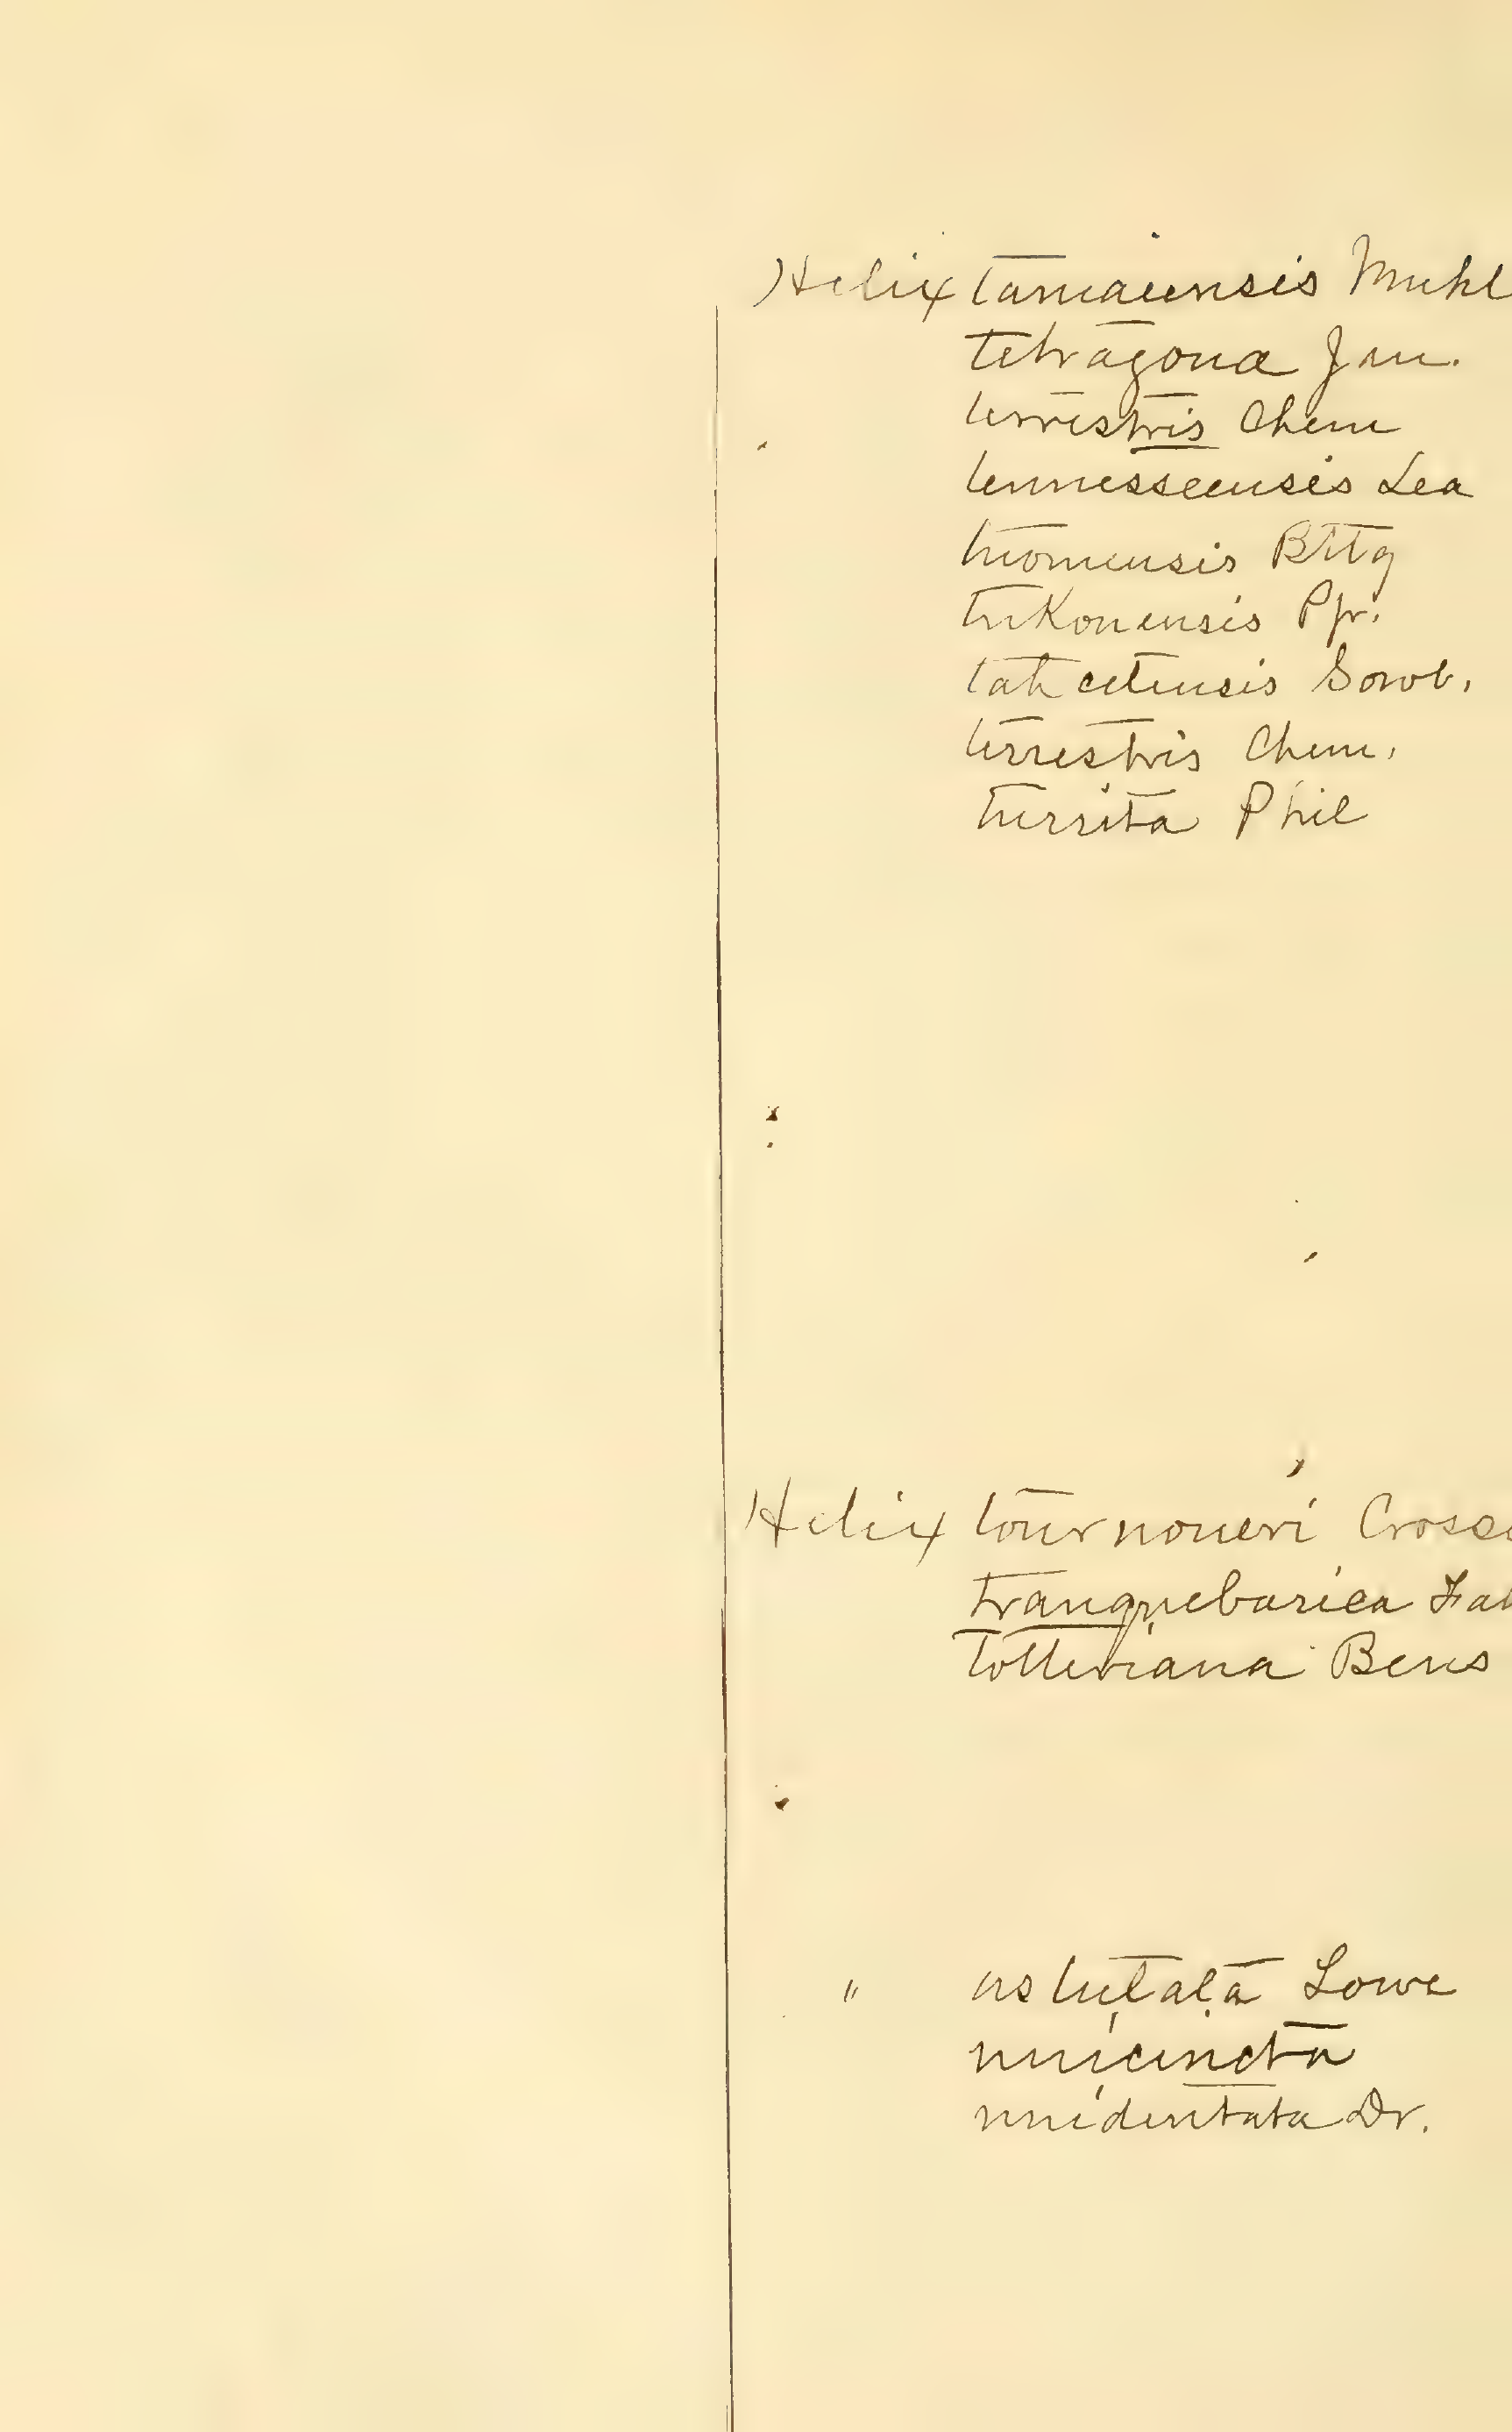 Helix tamaiensis Muhl
tetragona Jan.
terrestris Chem
tennesseensis Lea
Bttg
trikonensis Pfr.
taheitensis Sowb.
terrestris Chem.
turrita Phil
Helix tournoueri Crosse
tranquebarica Fab
totteriana Bens
" ustulata Lowe
unicincta
unidentata Dr.